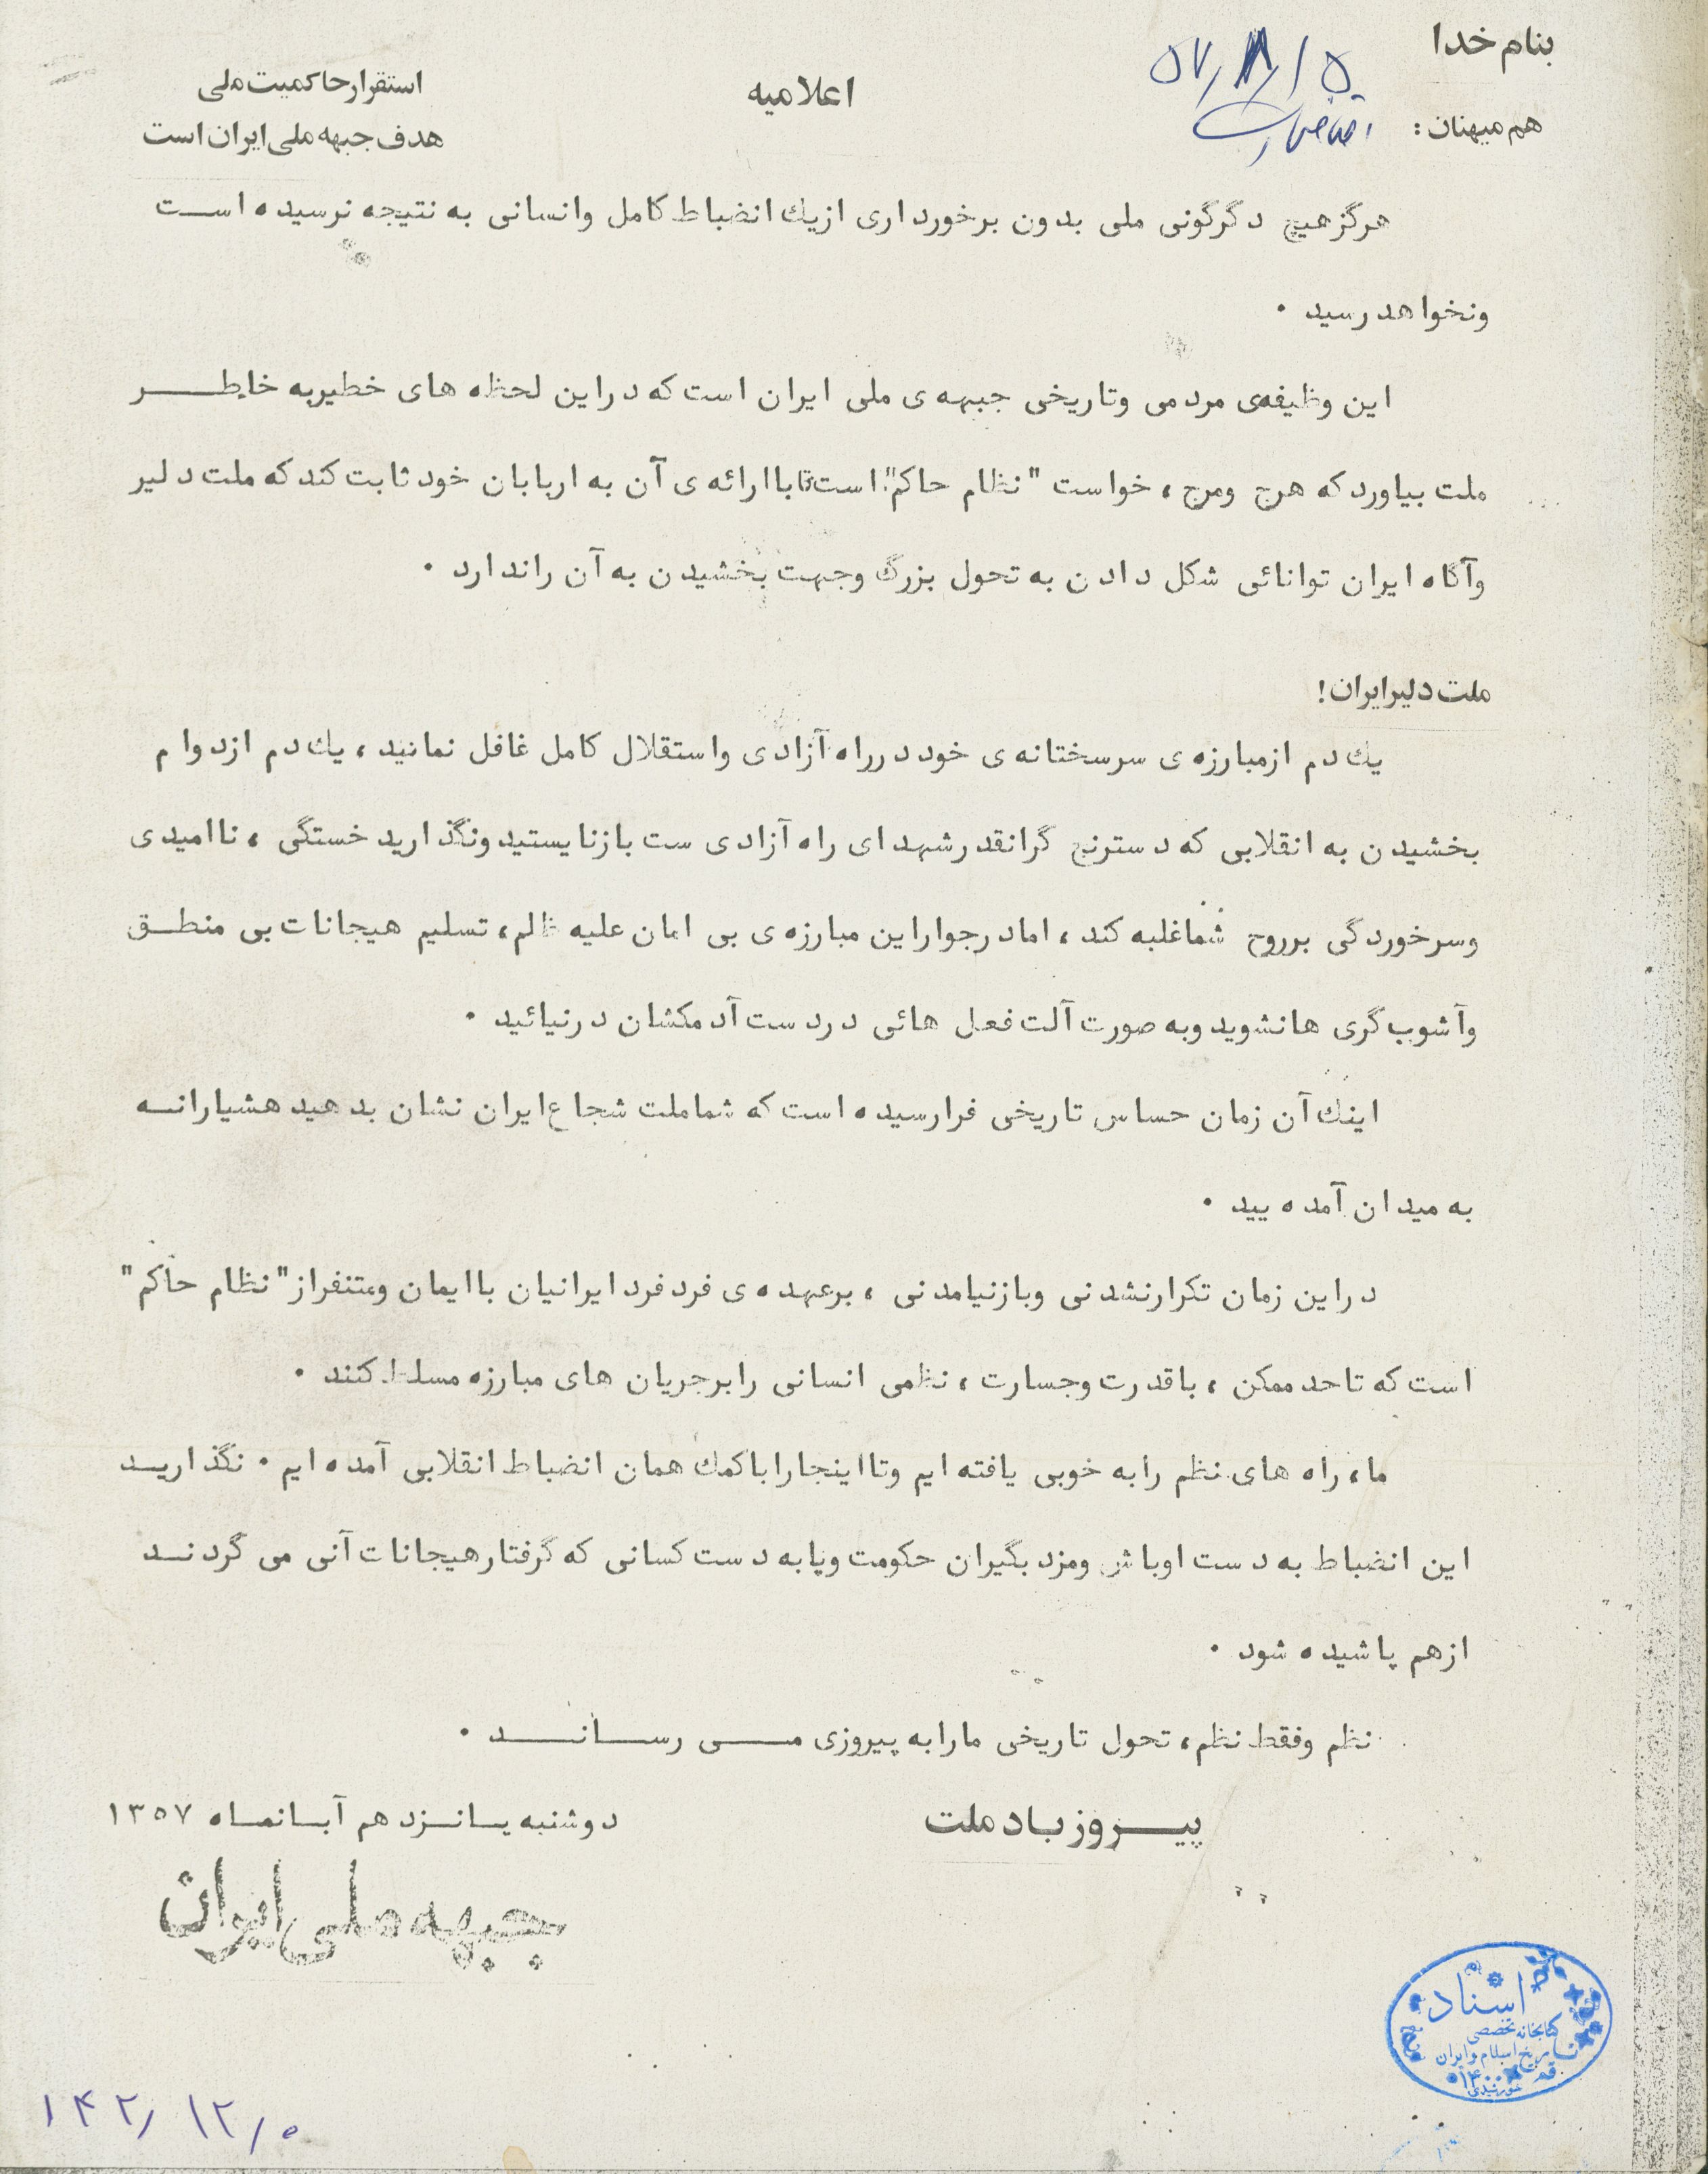 بنام خدا
۵۷/۸/۱۵
اعلامیه
استقرار حاکمیت ملی
هدف جبهه ملی ایران است
هم میهنان :
هرگز هیچ دگرگونی ملی بدون برخورداری از یك انضباط کامل وانسانی به نتیجه نرسیده اسـت
ونخواهد رسید ۰
این وظیفه‌ی مردمی وتاریخی جبهه ی ملی ایران است که در این لحظه های خطیر به خاطـــر
ملت بیاورد که هرج ومرج ، خواست "نظام حاکم" است تا با ارائه ی آن به اربابان خود ثابت کند که ملت دلیر
وآگاه ایران توانائی شکل دادن به تحول بزرگ وجهت بخشیدن به آن را ندارد ۰
ملت دلیر ایران !
یك دم از مبارزه ی سرسختانه ی خود در راه آزادی واستقلال کامل غافل نمانید ، یك دم از دوام
بخشیدن به انقلابی که دسترنج گرانقدر شهدای راه آزادی ست باز نایستید ونگذارید خستگی ، ناامیدی
وسرخوردگی بر روح شما غلبه کند ، اما در جوار این مبارزه ی بی امان علیه ظالم ، تسلیم هیجانات بی منطـق
وآشوب گری ها نشوید وبه صورت آلت فعل هائی در دست آدمکشان در نیائید ۰
اینك آن زمان حساس تاریخی فرا رسیده است که شما ملت شجاع ایران نشان بدهید هشیارانـه
به میدان آمده یید ۰
در این زمان تکرار نشدنی وباز نیامدنی ، بر عهده ی فرد فرد ایرانیان با ایمان ومتنفر از "نظام حاکم"
است که تا حد ممکن ، با قدرت وجسارت ، نظمی انسانی را بر جریان های مبارزه مسلط کنند ۰
ما، راه های نظم را به خوبی یافته ایم وتا اینجا را با کمك همان انضباط انقلابی آمده ایم ۰ نگذاریـد
این انضباط به دست اوباش ومزد بگیران حکومت ویا به دست کسانی که گرفتار هیجانات آنی می گردنـد
از هم پاشیده شود ۰
نظم وفقط نظم ، تحول تاریخی ما را به پیروزی مـــی رســانـــد ۰
پیـــروز بـاد ملت
دوشنبه پـانـزدهم آبـانمـاه ۱۳۵۷
جبهه ملی ایران
اسناد
کتابخانه تخصصی
تاریخ اسلام و ایران
قم
۱۴۲/۱۲/۰